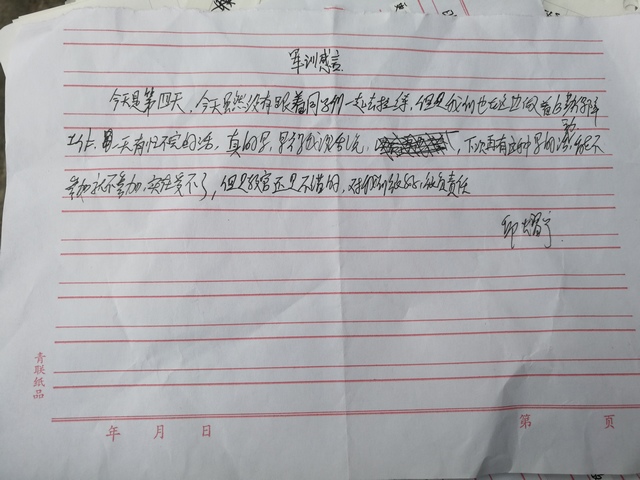 军训感言
今天是第四天，今天虽然没有跟着同学们一起去拉练，但是我们也在这边做着后勤保障
工作，一天有忙不完的活，真的是，累得我没话说，，下次再有这种累的活，能不
参加就不参加，实在受不了，但是教官还是不错的，对我们很好，很负责任
邱
青联纸品
年 月 日
第 页